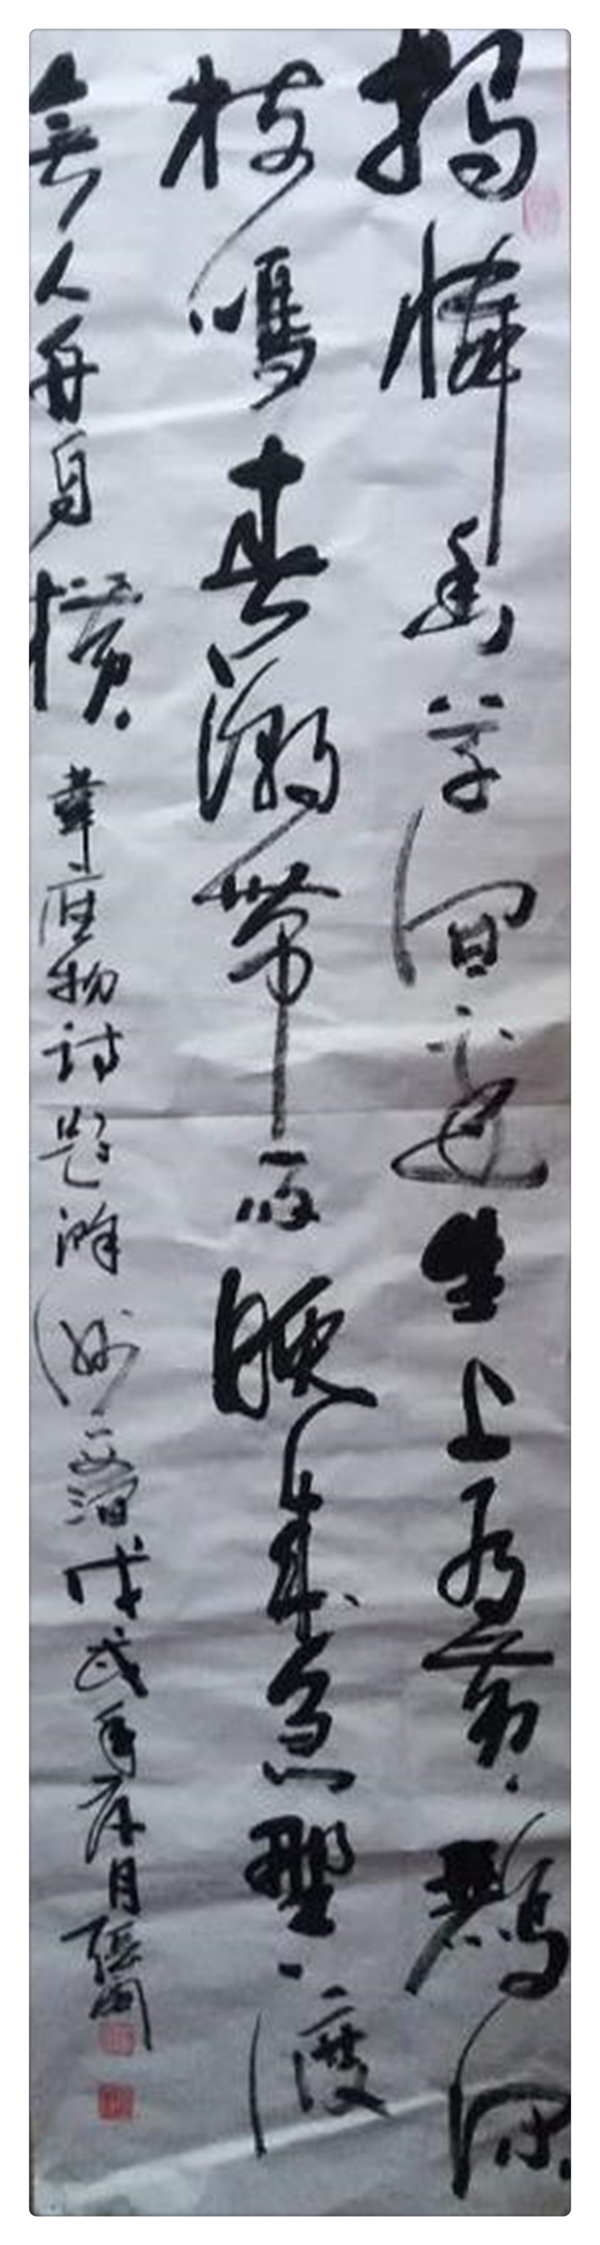 獨憐幽草澗邊生上有黄鸝深
樹鳴春潮帶雨晚来急野渡
無人舟自橫韋應物詩題滁州西澗戊戌年月張